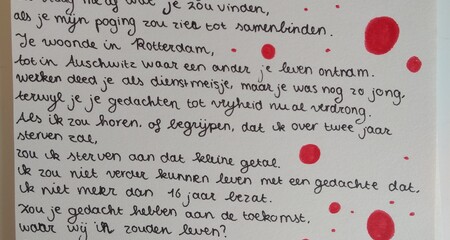 je zou vinden,
als je mijn poging zou zien tot samenbinden.
Je woonde in Rotterdam,
tot in Auschwitz waar een ander je leven ontnam.
werken deed je als dienstmeisje, maar je was nog zo jong,
terwyl je je gedachten tot vryheid nu al verdrong.
Als ik zou horen of begrijpen, dat ik over twee jaar
sterven zal,
zou ik sterven aan dat kleine getal.
Ik zou niet verder kunnen leven met een gedachte dat,
ik niet meer dan 16 jaar bezat.
Zou je gedacht hebben aan de toekomst,
waar wij in zouden leven?